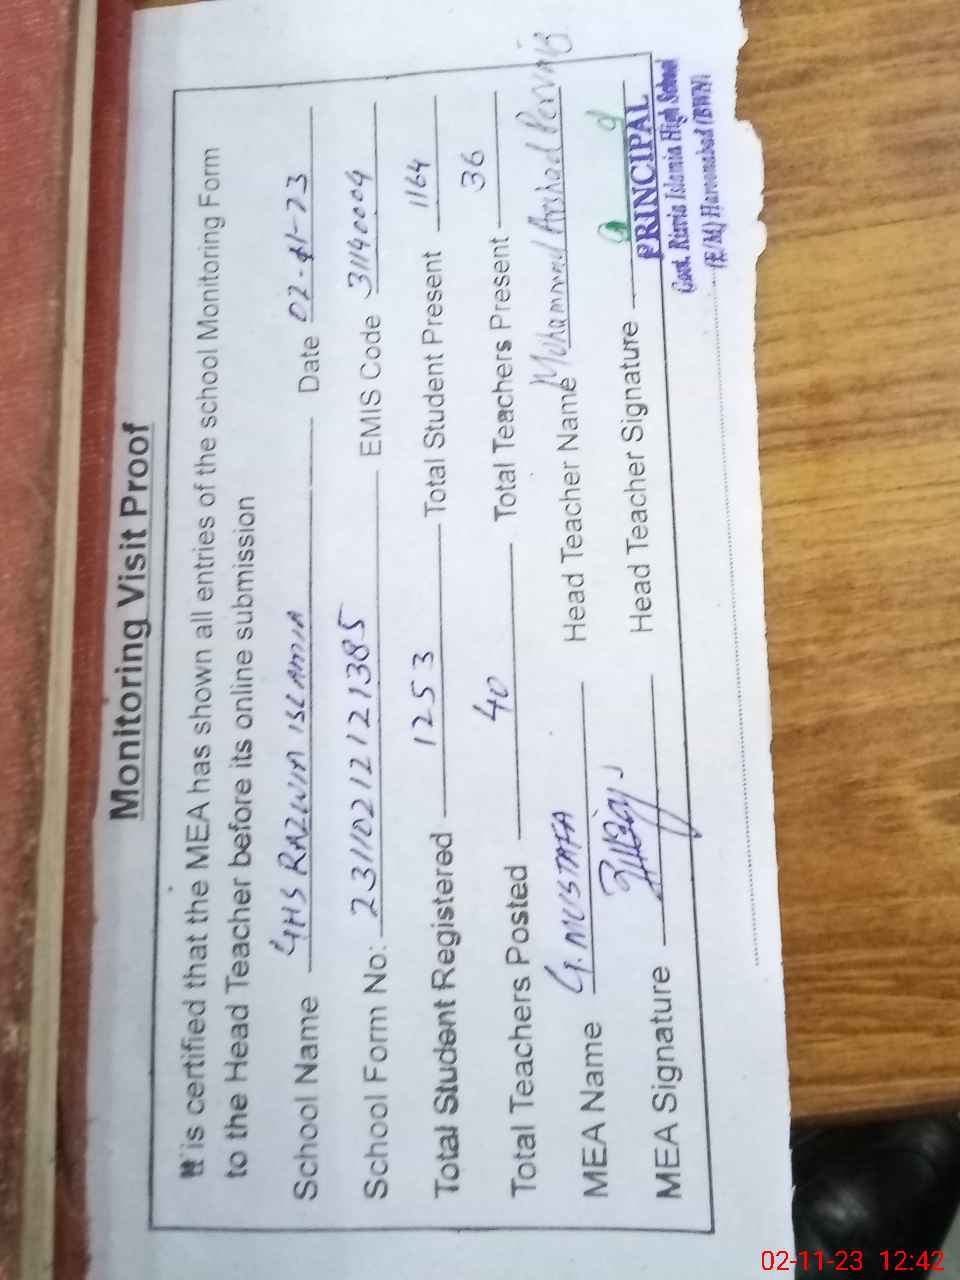 Monitoring Visit Proof
It is certified that the MEA has shown all entries of the school Monitoring Form
to the Head Teacher before its online submission
School Name GHS RAZWIA ISLAMIA Date 02-11-23
School Form No: 231102121212385 EMIS Code 31140009
Total Student Registered 1253 Total Student Present 1164
Total Teachers Posted 40 Total Teachers Present 36
MEA Name G. MUSTAFA Head Teacher Name Muhammad Arshad Pervaiz
MEA Signature Head Teacher Signature
PRINCIPAL
Govt. Rizvia Islamia High School
(E/M) Haroonabad (BWN)
02-11-23 12:42